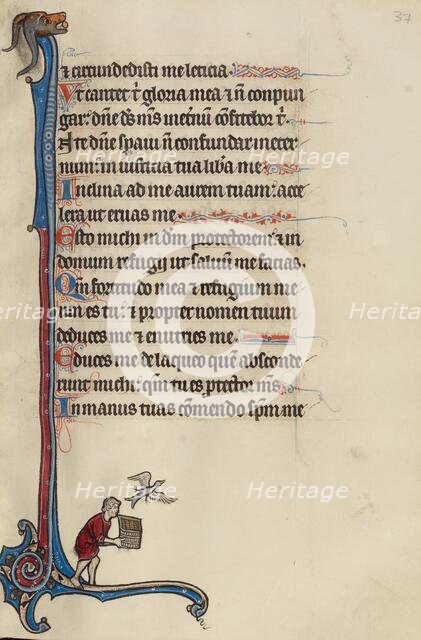 37
& circundedisti me leticia.
Ut cantet t' gloria mea & ñ conpun
gar: dñe ds ms ineternũ cõfitebor t'.
In te dñe speraui ñ confundar ineter
num: in iusticia tua libera me
Inclina ad me aurem tuam: acce
lera ut eruas me
Esto michi in dm protectorem: & in
domum refugij ut saluũ me facias.
Qm fortitudo mea & refugium me
um es tu: & propter nomen tuum
deduces me & enutries me
Educes me de laqueo quẽ absconde
runt michi: qm tu es ptector ms.
In manus tuas cõmendo spm me
Heritage
Heritage
Heritage
Heritage
Heritage
Heritage
Heritage
Heritage
C